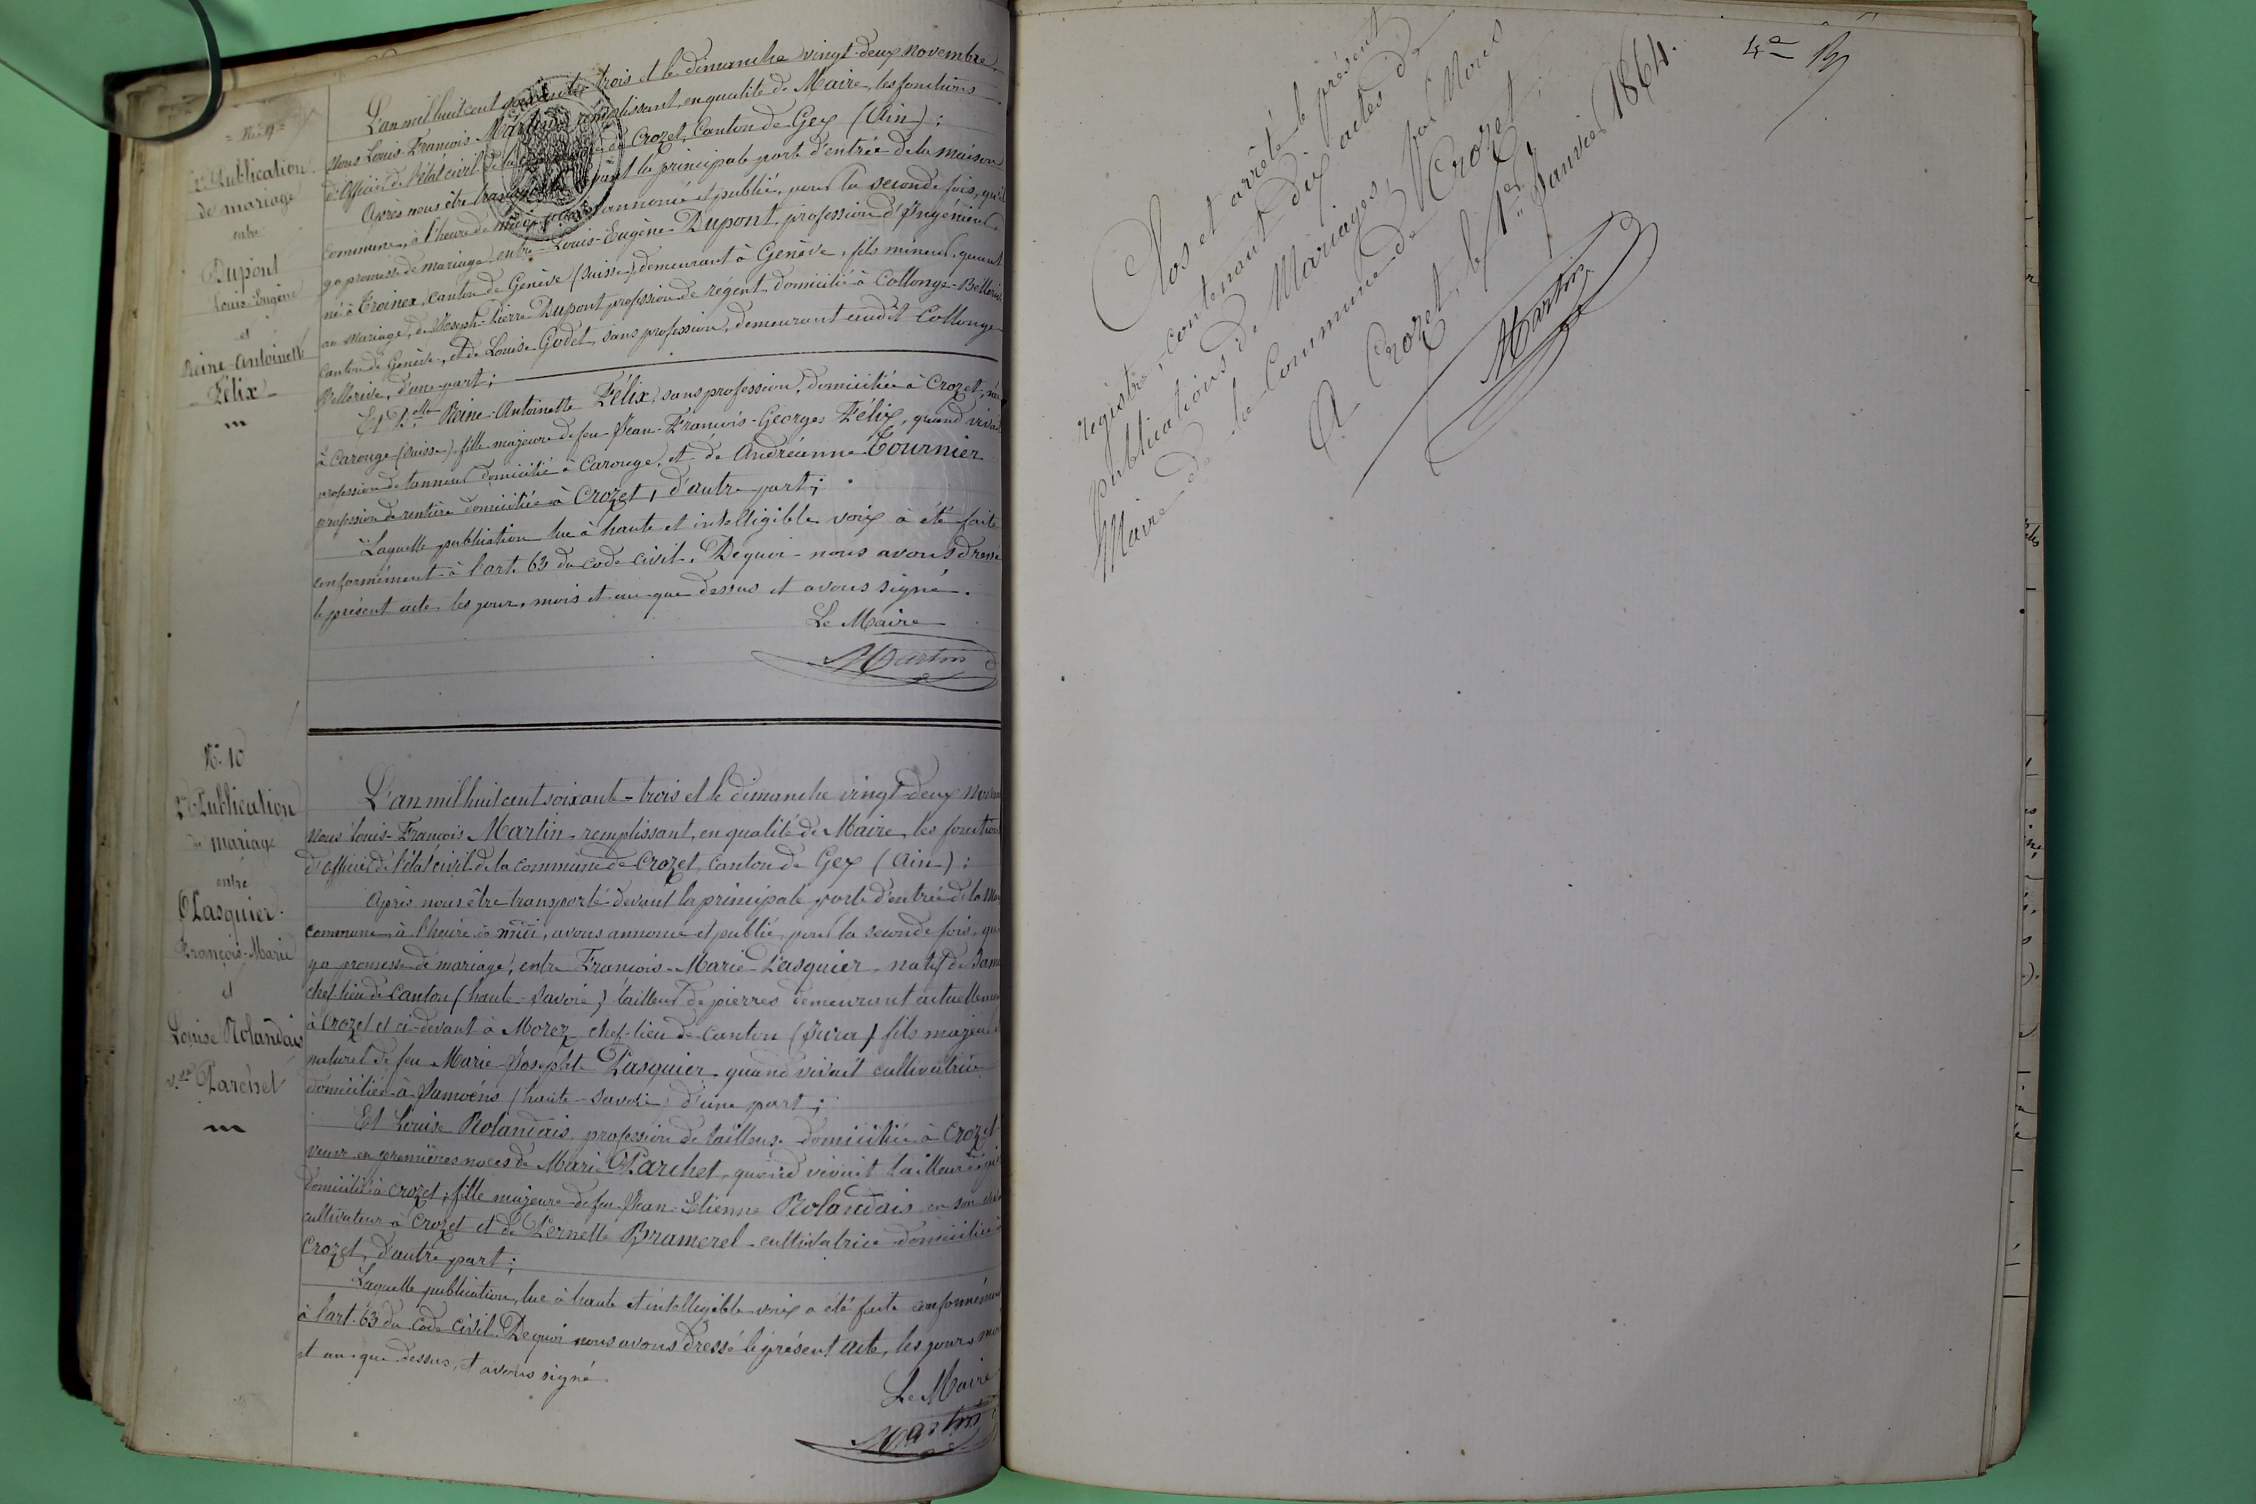 = N.° 9 =
2.e Publication
de mariage
entre
Dupont
Louis-Eugène
et
Reine-Antoinette
Félix
L'an mil huit cent soixante trois et le dimanche vingt-deux novembre,
Nous Louis-François Martin remplissant, en qualité de Maire, les fonctions
d'Officier de l'état civil de la commune de Crozet, Canton de Gex (Ain) :
Après nous être transporté devant la principale porte d'entrée de la maison
commune, à l'heure de midi, avons annoncé et publié, pour la seconde fois, qu'il
y a promesse de mariage, entre Louis-Eugène Dupont profession d'Ingénieur
né à Troinex, canton de Genève (Suisse) demeurant à Genève, fils mineur, quant
au mariage, de Joseph-Pierre Dupont profession de régent domicilié à Collonge-Bellerive
canton de Genève, et de Louise Godet, sans profession, demeurant audit Collonge
Bellerive, d'une part ;
Et D.elle Reine-Antoinette Félix, sans profession, domiciliée à Crozet, née
à Carouge (Suisse), fille majeure de feu Jean-François-Georges Félix, quand vivait
profession de tanneur domicilié à Carouge, et de Andréanne Tournier
profession de rentière domiciliée à Crozet, d'autre part ;
Laquelle publication lue à haute et intelligible voix à été faite
conformément à l'art. 63 du code civil. De quoi nous avons dressé
le présent acte les jour, mois et an que dessus et avons signé.
Le Maire
Martin
N.° 10
2.e Publication
de mariage
entre
Pasquier
François-Marie
et
Louise Rolandais
v.ve Parchet
L'an mil huit cent soixante-trois et le dimanche vingt-deux
Nous Louis-François Martin remplissant, en qualité de Maire, les fonctions
d'Officier de l'état civil de la commune de Crozet, canton de Gex (Ain) :
Après nous être transporté devant la principale porte d'entrée de la
commune, à l'heure de midi, avons annoncé et publié, pour la seconde fois, qu
y a promesse de mariage, entre François-Marie Pasquier, natif de
chef lieu de Canton (haute-Savoie) tailleur de pierres demeurant actuellement
à Crozet et ci-devant à Morez chef-lieu de canton (Jura) fils majeur
naturel de feu Marie-Josephte Pasquier quand vivait cultivatrice
domiciliée à Samoëns (haute-Savoie) d'une part ;
Et Louise Rolandais, profession de tailleuse domiciliée à Crozet
veuve en premières noces de Marie Parchet, quand vivait tailleur
domicilié à Crozet ; fille majeure de feu Jean-Etienne Rolandais en son
cultivateur à Crozet et de Pernette Bramerel cultivatrice domiciliée à
Crozet, d'autre part ;
Laquelle publication, lue à haute et intelligible voix a été faite conformément
à l'art. 63 du Code civil. De quoi nous avons dressé le présent acte, les jour,
et an que dessus, et avons signé
Le Maire
Martin
Clos et arrêté le présent
registre, contenant dix actes de
publications de Mariages, par Nous
Maire de la Commune de Crozet.
A Crozet, le 1.er Janvier 1864.
Martin